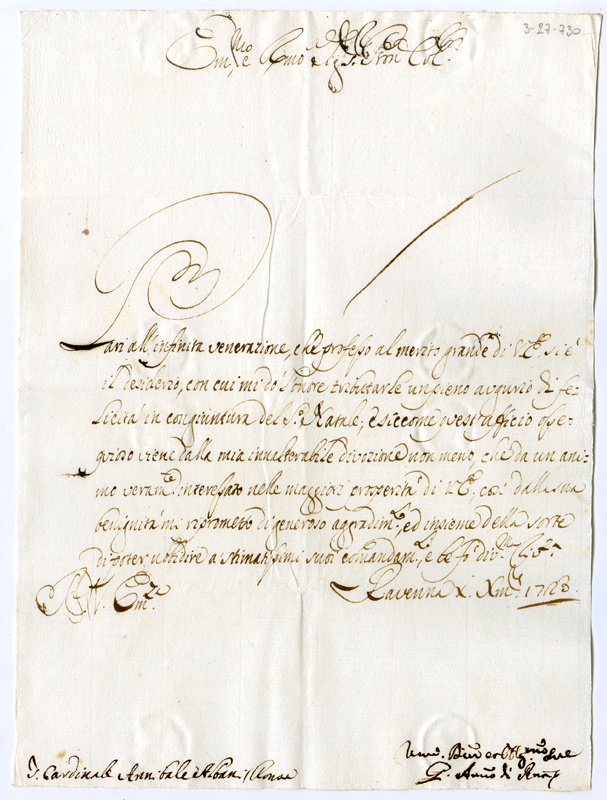 3-27-730
Em.mo e Rmo Sig.r e Pron Col.mo
Pari all'infinita venerazione, che professo al merito grande di V.E. si è
il desiderio, con cui mi dò l'onore tributarle un pieno augurio di fe-
licità in congiuntura del S.o Natale; e siccome quest'afficio osse-
quioso viene dalla mia inalterabile divozione non meno, che da un ani-
mo veram.te interessato nelle maggiori prosperità di V.E. così dalla sua
benignità mi riprometto di generoso aggradim.to, ed insieme della sorte
di poter ubbidire a stimatissimi suoi comandam.ti, e
Ravenna x. Xmb. 1723.
V. Em.za
S. Cardinale Annibale Albani Roma
Um.o
G.